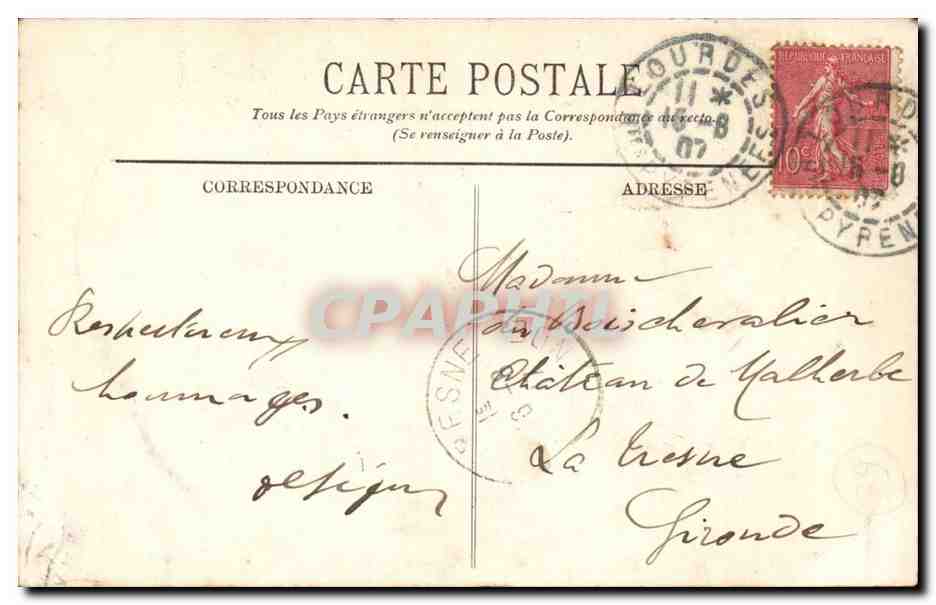 CARTE POSTALE
Tous les Pays étrangers n'acceptent pas la Correspondance au recto
(Se renseigner à la Poste).
LOURDES
11 *
15 -8
07
REPUBLIQUE FRANÇAISE
10c
PYREN
CORRESPONDANCE
ADRESSE
Respectueux
hommages.
Madame
Boischevalier
Château de Malherbe
La Tresne
Gironde
CPAPHIL